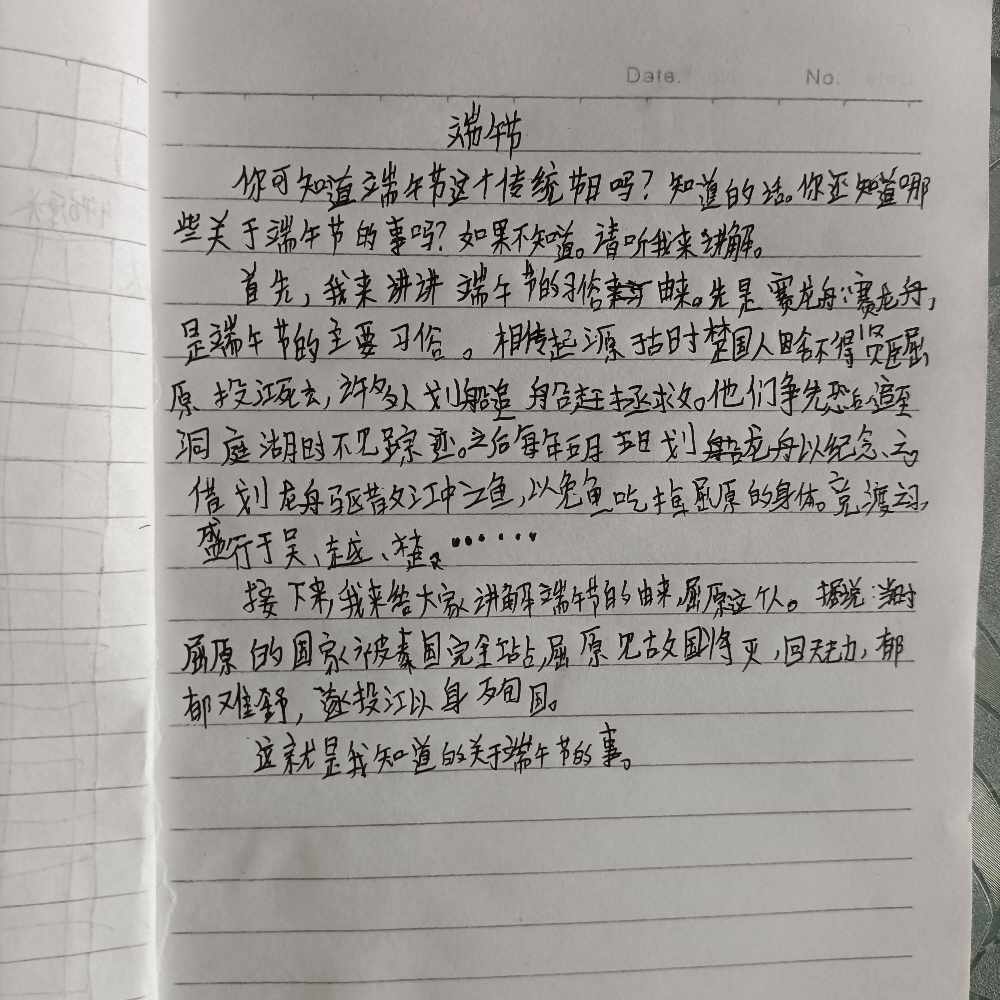 Date. No.
端午节
你可知道端午节这个传统节日吗？知道的话。你还知道哪
些关于端午节的事吗？如果不知道。请听我来讲解。
首先，我来讲讲端午节的习俗由来。先是赛龙舟：赛龙舟，
是端午节的主要习俗。相传起源于古时楚国人因舍不得贤臣屈
原投江死去，许多人划船追赶拯救。他们争先恐后，追至
洞庭湖时不见踪迹。之后每年五月五日划龙舟以纪念之。
借划龙舟驱散江中之鱼，以免鱼吃掉屈原的身体。竞渡之习，
盛行于吴、越、楚。……
接下来，我来给大家讲解端午节的由来，屈原这个人。据说：当时
屈原的国家被秦国完全占，屈原见故国将灭，回天无力，郁
郁难舒，遂投江以身殉国。
这就是我知道的关于端午节的事。